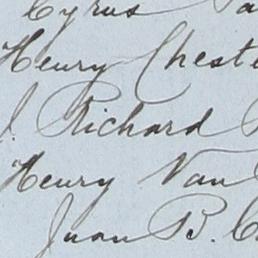 Cyrus
Henry Chest
J. Richard
Henry Van
Juan B. C